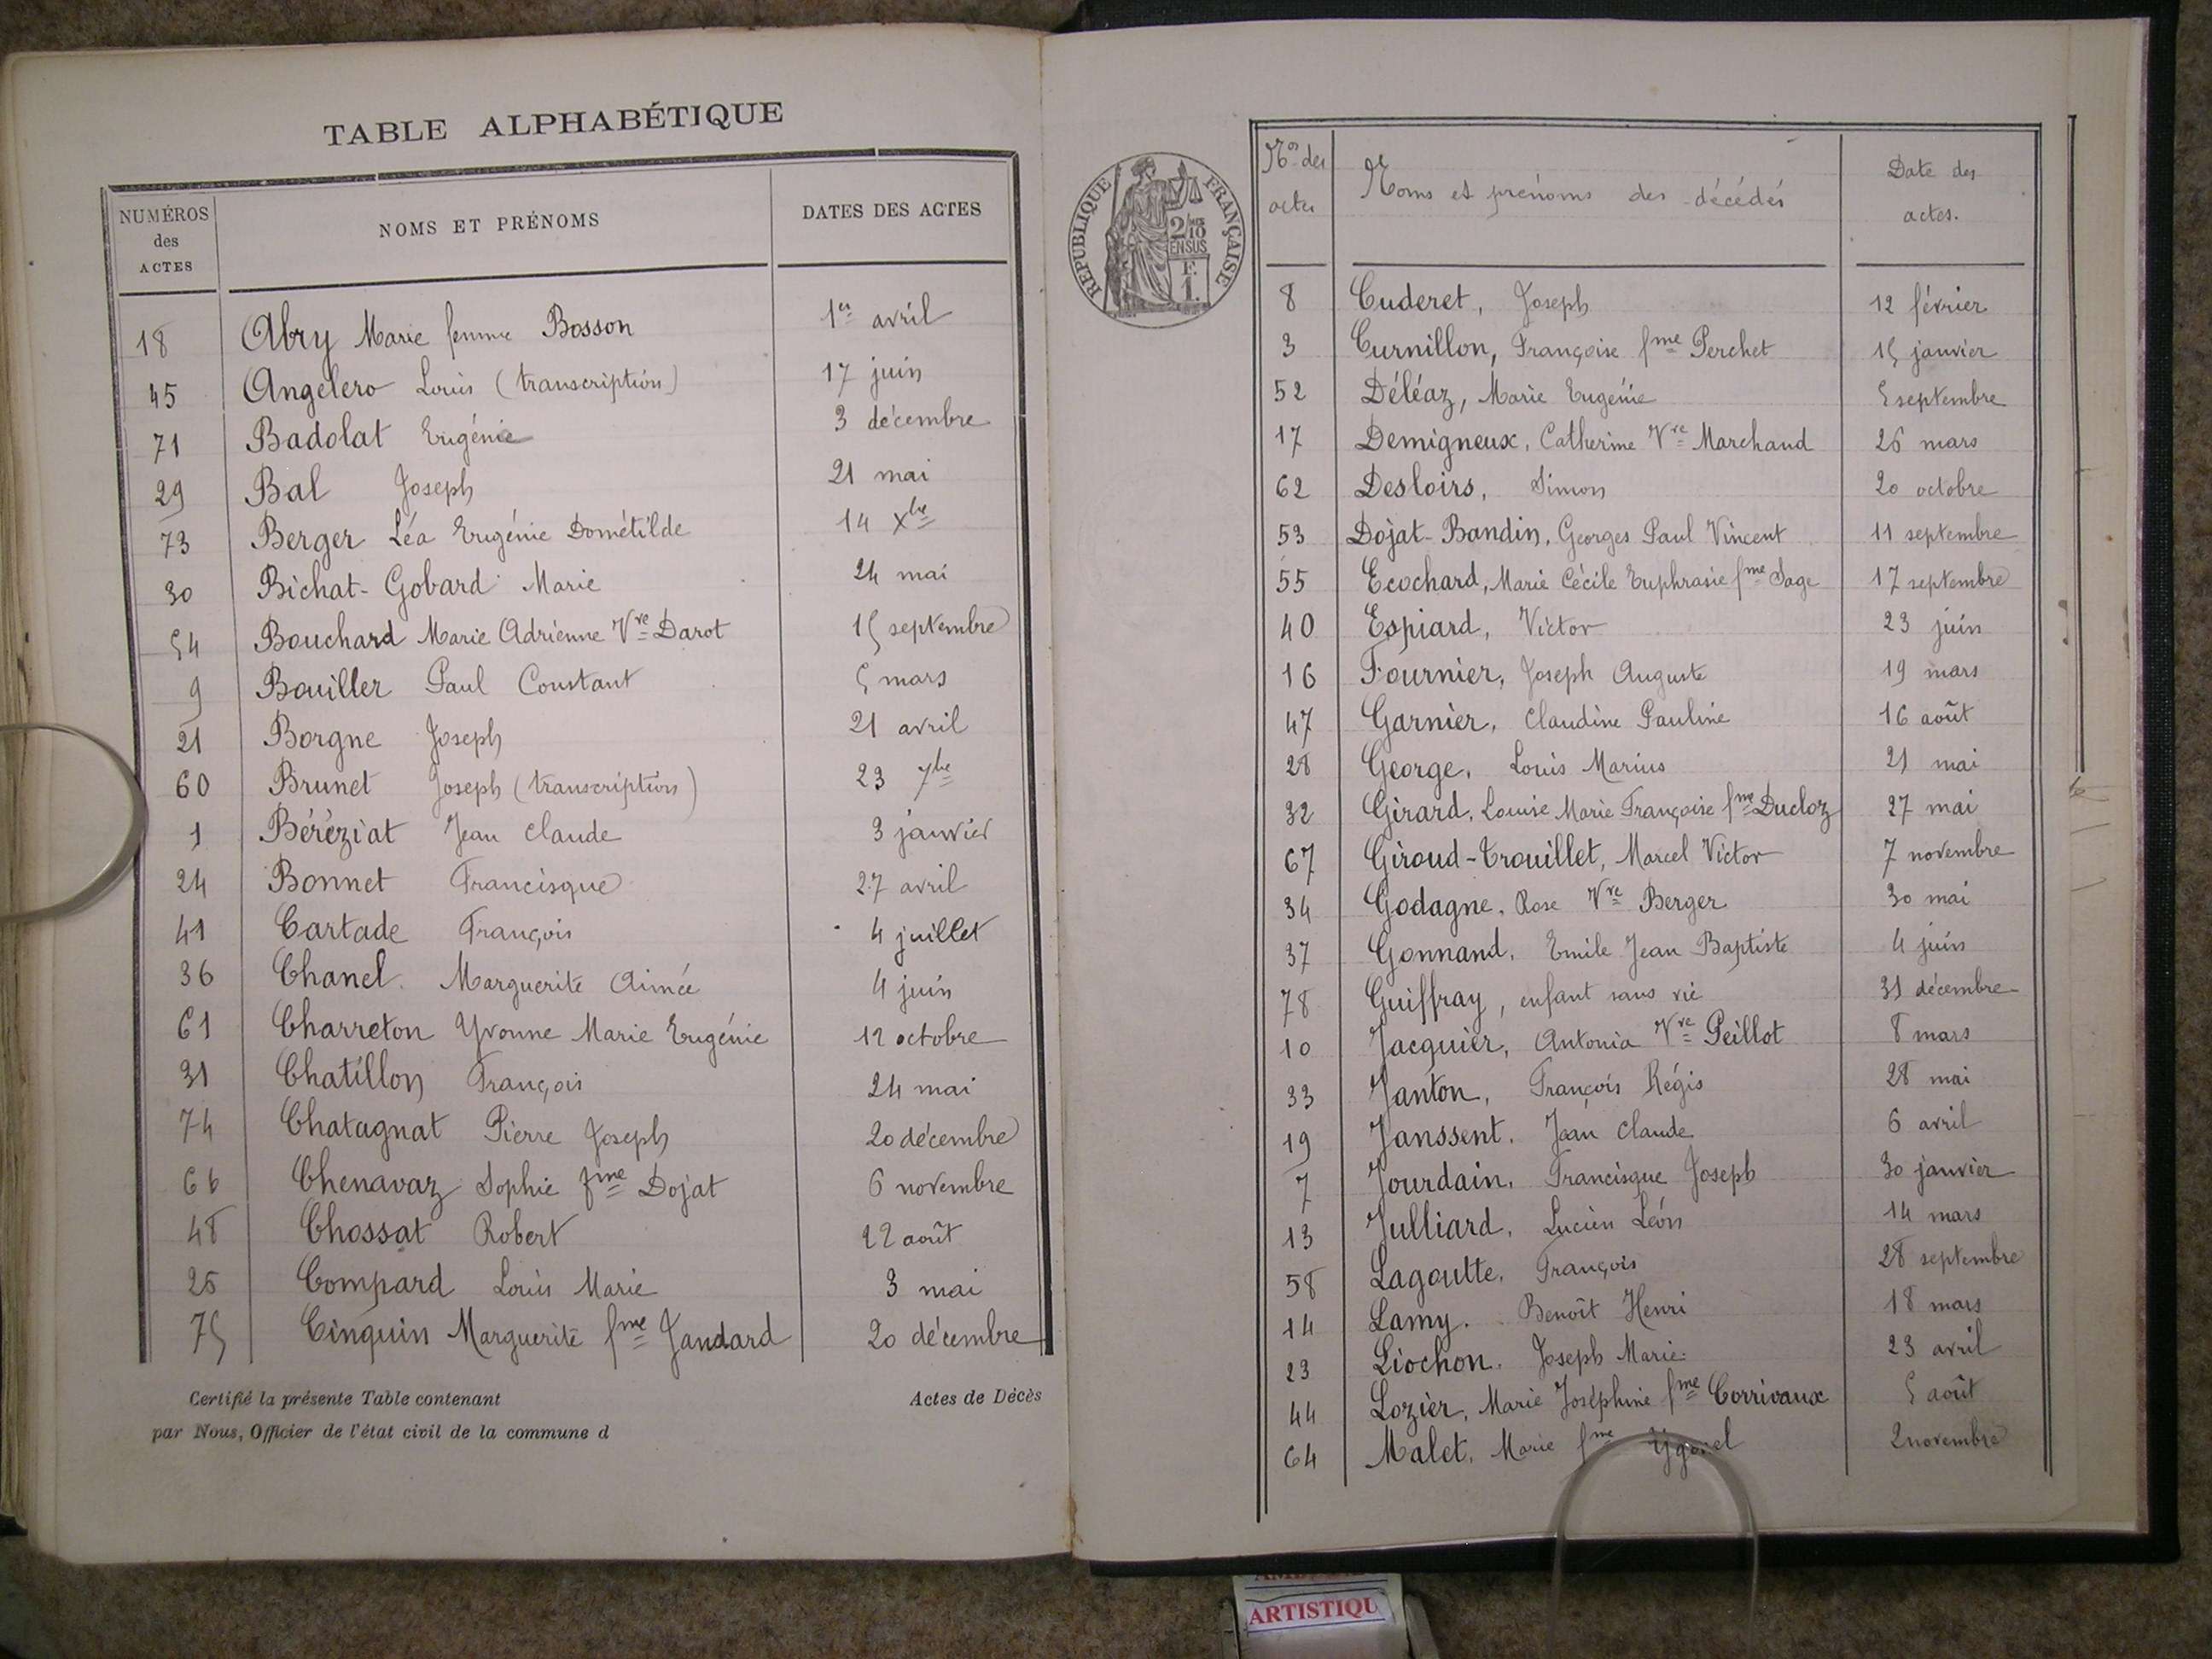 TABLE ALPHABÉTIQUE
NUMÉROS des ACTES NOMS ET PRÉNOMS DATES DES ACTES
18 Abry Marie femme Bosson 1er avril
45 Angelero Louis (transcription) 17 juin
71 Badolat Eugénie 3 décembre
29 Bal Joseph 21 mai
73 Berger Léa Eugénie Dométilde 14 Xbre
30 Bichat-Gobard Marie 24 mai
54 Bouchard Marie Adrienne Vve Darot 15 septembre
9 Bouiller Paul Constant 5 mars
21 Borgne Joseph 21 avril
60 Brunet Joseph (transcription) 23 7bre
1 Béréziat Jean Claude 3 janvier
24 Bonnet Francisque 27 avril
41 Cartade François 4 juillet
36 Chanel Marguerite Aimée 4 juin
61 Charreton Yvonne Marie Eugénie 12 octobre
31 Chatillon François 24 mai
74 Chatagnat Pierre Joseph 20 décembre
66 Chenavaz Sophie fme Dojat 6 novembre
48 Chossat Robert 22 août
25 Compard Louis Marie 3 mai
75 Cinquin Marguerite fme Jandard 20 décembre
Certifié la présente Table contenant Actes de Décès
par Nous, Officier de l'état civil de la commune d
RÉPUBLIQUE FRANÇAISE
2/10 EN SUS
F. 1.
Nos des actes Noms et prénoms des décédés Date des actes.
8 Cuderet, Joseph 12 février
3 Curnillon, Françoise fme Perchet 15 janvier
52 Déléaz, Marie Eugénie 5 septembre
17 Demigneux, Catherine Vve Marchand 26 mars
62 Desloirs, Simon 20 octobre
53 Dojat-Bandin, Georges Paul Vincent 11 septembre
55 Ecochard, Marie Cécile Euphrasie fme Sage 17 septembre
40 Espiard, Victor 23 juin
16 Fournier, Joseph Auguste 19 mars
47 Garnier, Claudine Pauline 16 août
28 George, Louis Marius 21 mai
32 Girard, Louise Marie Françoise fme Ducloz 27 mai
67 Giroud-Trouillet, Marcel Victor 7 novembre
34 Godagne, Rose Vve Berger 30 mai
37 Gonnand, Emile Jean Baptiste 4 juin
78 Guiffray, enfant sans vie 31 décembre
10 Jacquier, Antonia Vve Peillot 8 mars
33 Janton, François Régis 28 mai
19 Janssent, Jean Claude 6 avril
7 Jourdain, Francisque Joseph 30 janvier
13 Julliard, Lucien Léon 14 mars
58 Lagoutte, François 28 septembre
14 Lamy. Benoît Henri 18 mars
23 Liochon. Joseph Marie 23 avril
44 Lozier, Marie Joséphine fme Corrivaux 5 août
64 Malet, Marie fme 2 novembre
ARTISTIQU